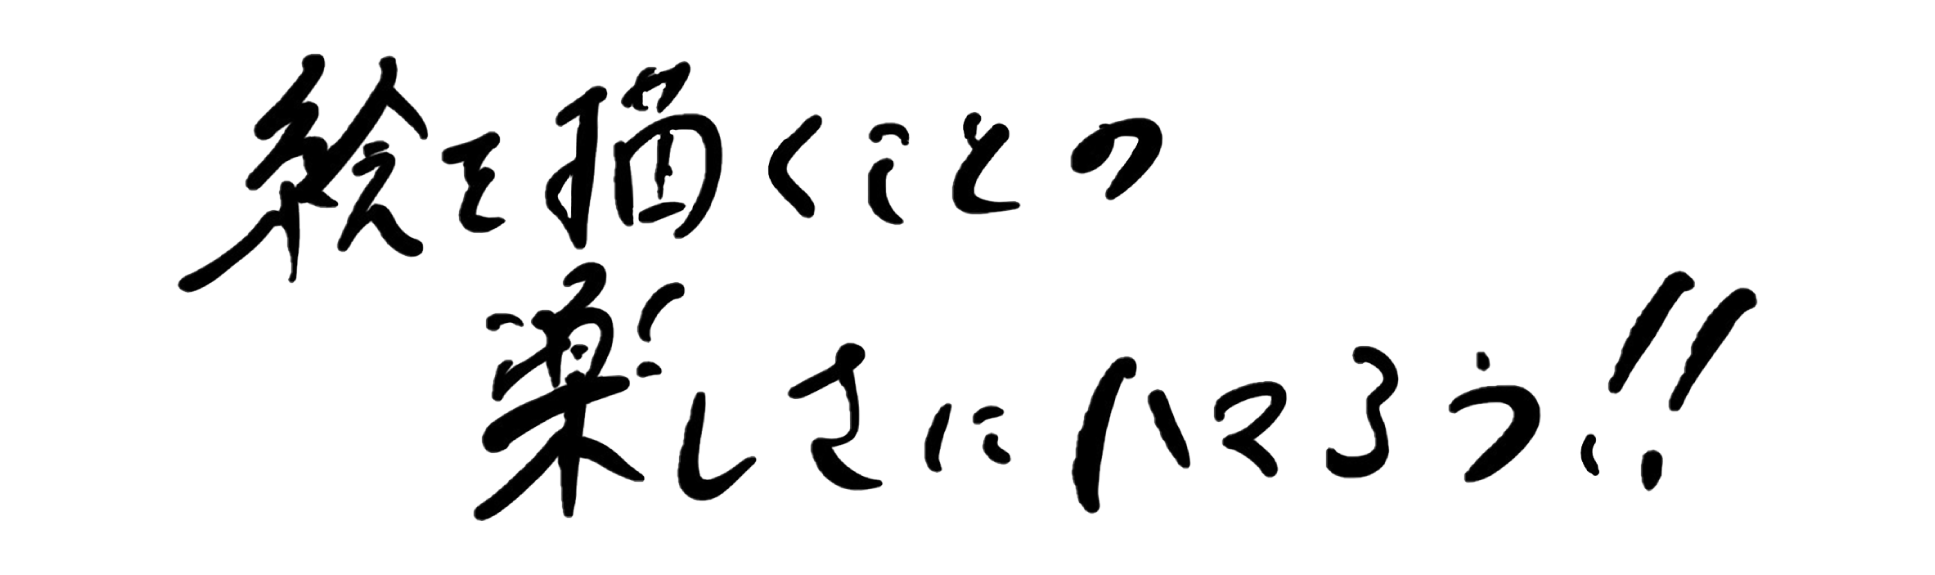 絵を描くことの
楽しさにハマろう!!